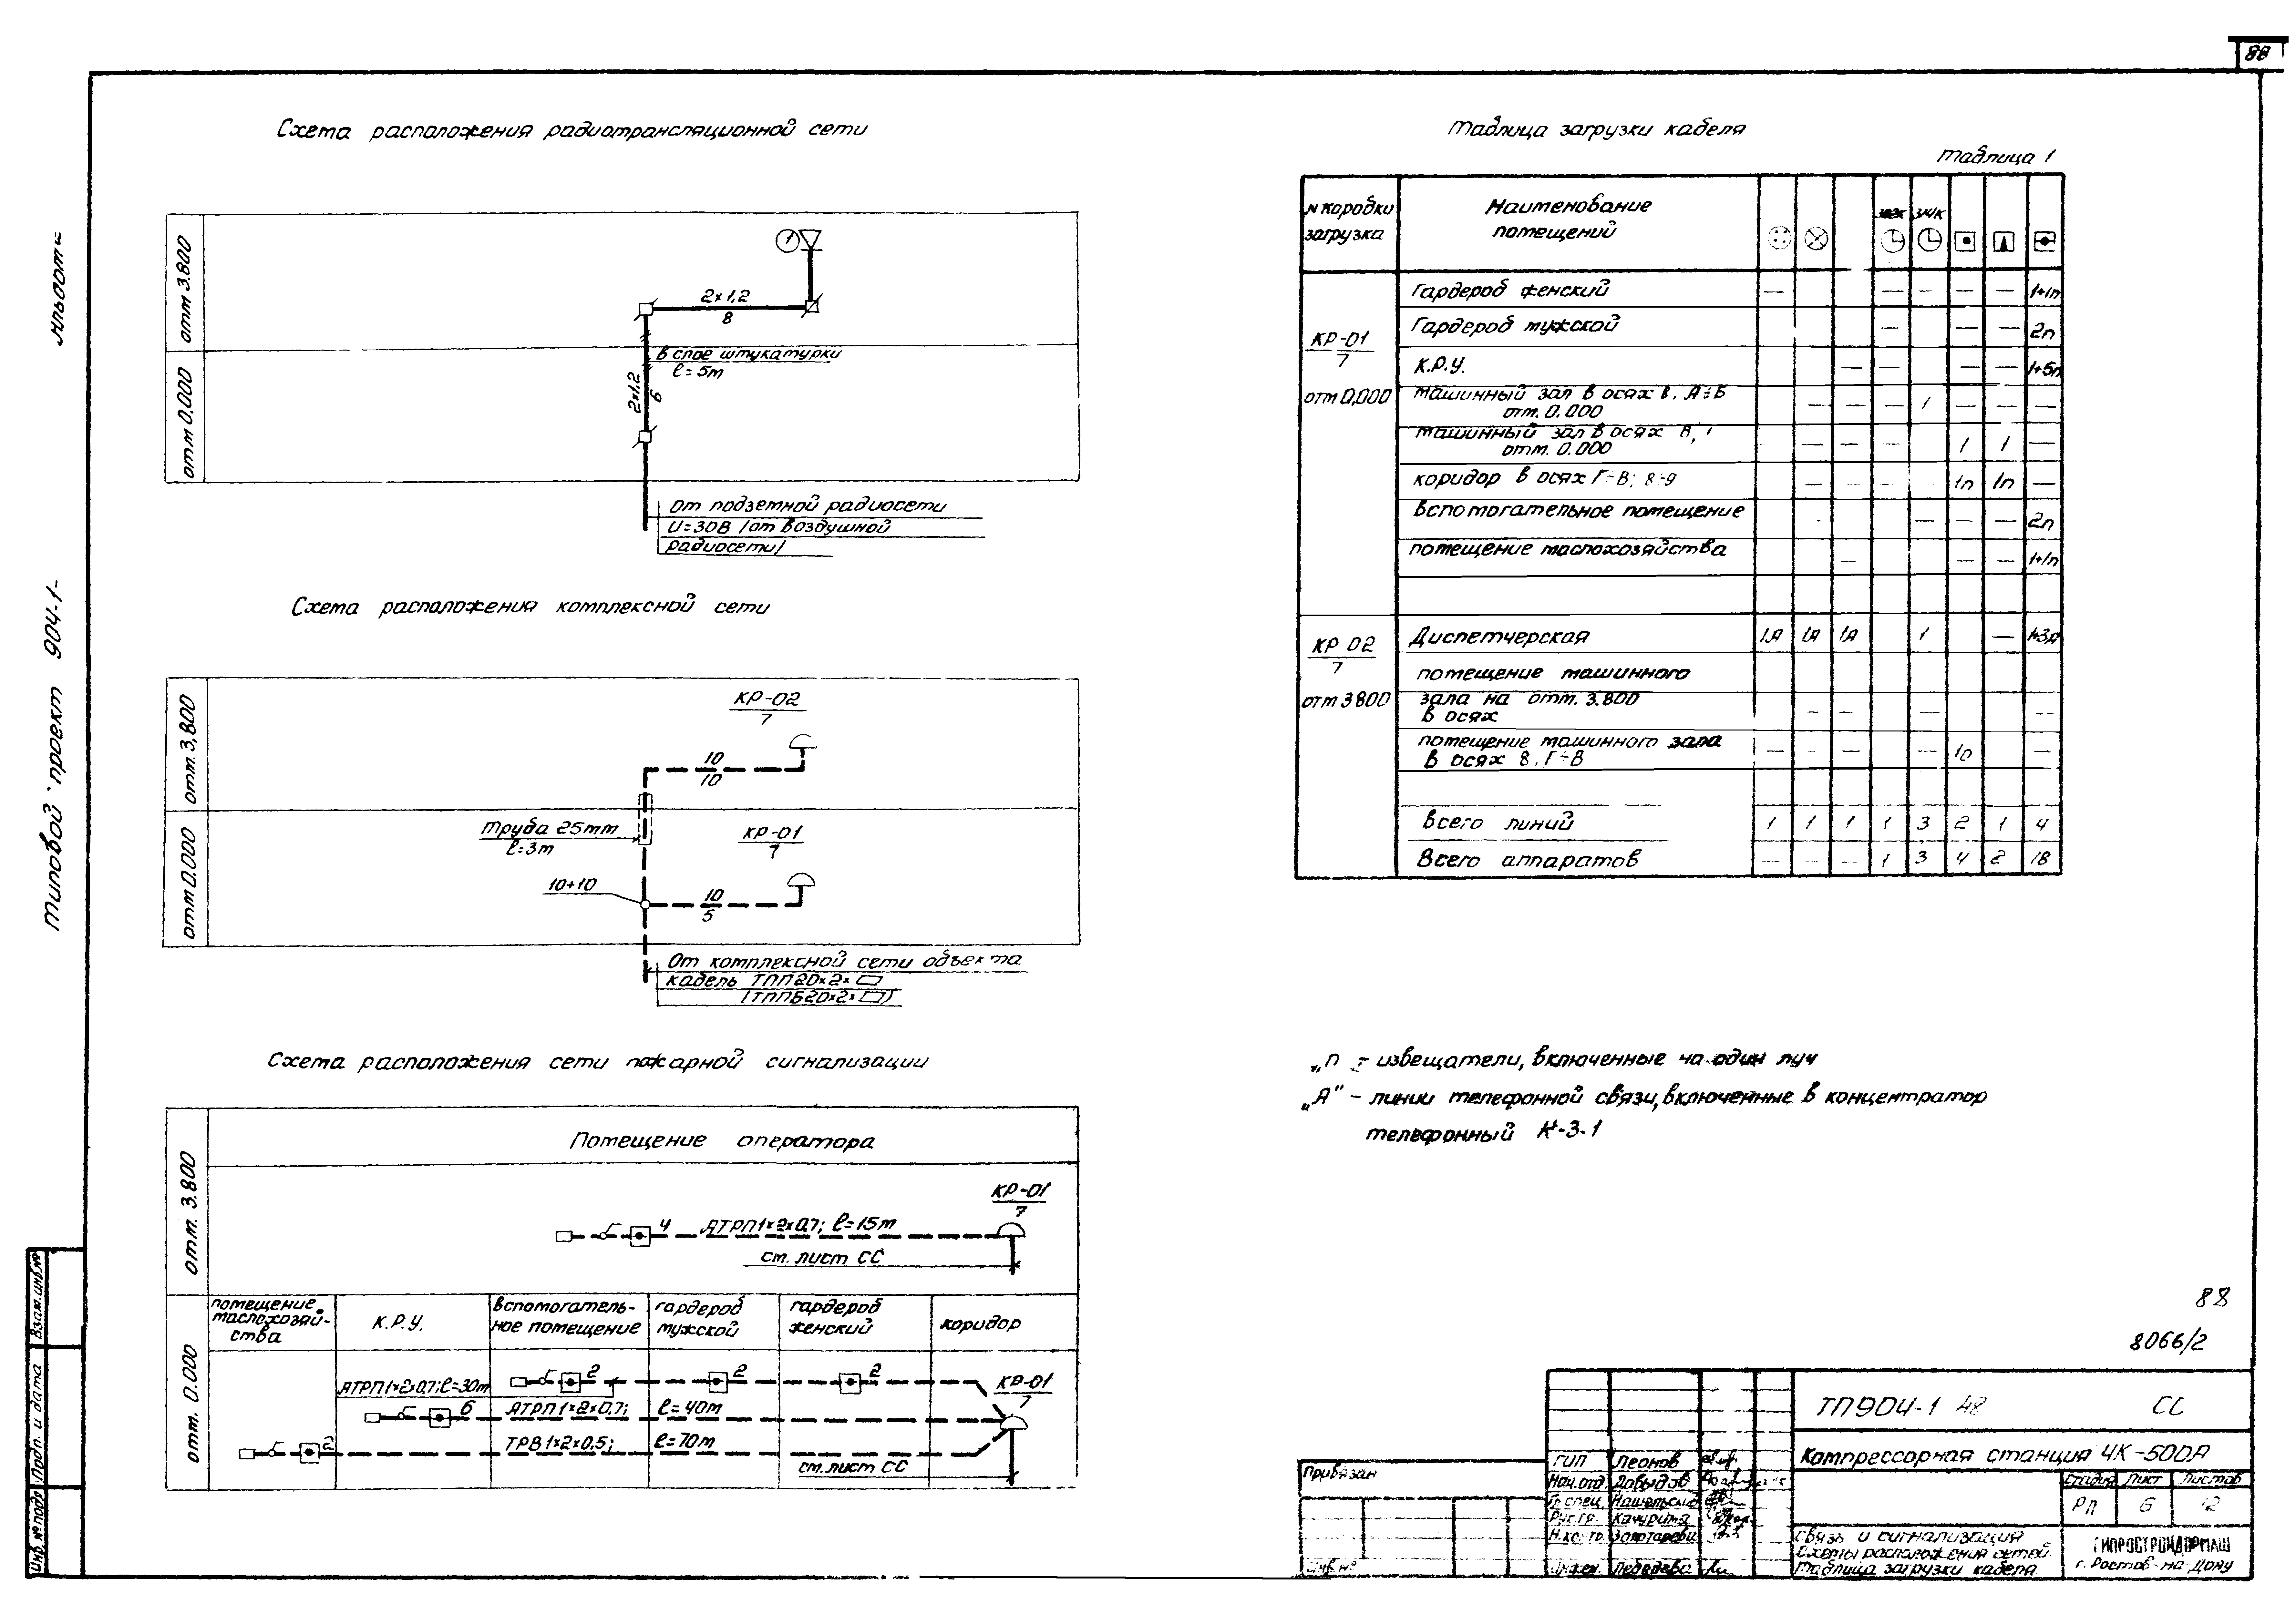 88
Схема расположения радиотрансляционной сети
отм 3.800
отм 0.000
1
2×1,2
8
в слое штукатурки
ℓ=5м
2×1,2
6
От подземной радиосети
U=30В /от воздушной
радиосети/
Схема расположения комплексной сети
отм. 3,800
отм 0.000
КР-02
7
10
10
Труба 25мм
ℓ=3м
КР-01
7
10+10
10
5
От комплексной сети объекта
кабель ТПП20×2×
(ТППБ20×2× )
Схема расположения сети пожарной сигнализации
отм. 3.800
Помещение оператора
КР-01
7
4 АТРП1×2×0,7; ℓ=15м
см. лист СС
отм. 0.000
помещение маслохозяй-ства
К.Р.У.
вспомогатель-ное помещение
гардероб мужской
гардероб женский
коридор
2
2
2
КР-01
7
АТРП1×2×0,7; ℓ=30м
6
АТРП1×2×0,7; ℓ=40м
2
ТРВ1×2×0,5; ℓ=70м
см. лист СС
Таблица загрузки кабеля
Таблица 1
N коробки загрузка
Наименование помещений
КР-01
7
отм 0,000
Гардероб женский — — — — — 1+1п
Гардероб мужской — — — 2п
К.Р.У. — — — — 1+5п
машинный зал в осях 8, А÷Б
отм. 0.000 — — — 1 — — —
машинный зал в осях
отм. 0.000 — — — 1 1 —
коридор в осях Г÷В; 8÷9 — — — 1п 1п —
Вспомогательное помещение — — — 2п
помещение маслохозяйства — — — 1+1п
КР 02
7
отм 3800
Диспетчерская 1А 1А 1А 1 — 1+3п
помещение машинного
зала на отм. 3.800
в осях
помещение машинного зала
в осях 8, Г÷В — — — — 1п —
Всего линий 1 1 1 1 3 2 1 4
Всего аппаратов — — — 1 3 4 2 18
„п - извещатели, включенные на один луч
„А" - линии телефонной связи, включенные в концентратор
телефонный К-3-1
88
8066/2
ТП904-1 48 СС
Компрессорная станция 4К-500А
Стадия Лист Листов
РП 6 12
Связь и сигнализация
Схемы расположения сетей.
Таблица загрузки кабеля
ГИПРОСТРОЙДОРМАШ
г. Ростов-на-Дону
ГИП Леонов
Нач.отд. Давыдов
Гл.спец.
Рук.гр. Качурина
Н.контр.
Инжен. Лебедева
Привязан
Инв.№
Альбом
Типовой проект 904-1-
Взам.инв.№
Подп. и дата
Инв.№ подл.